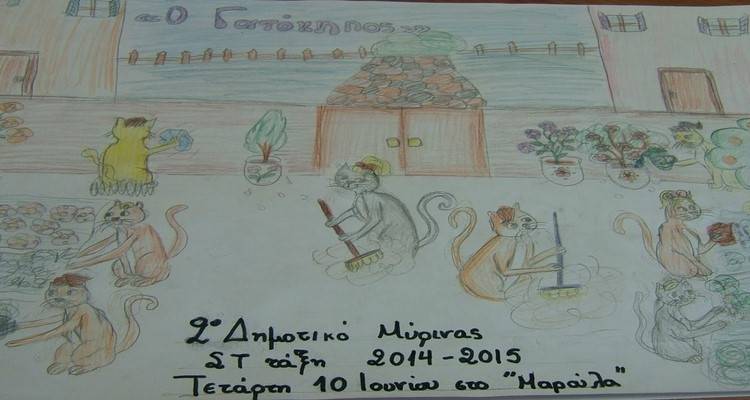 «Ο Γατόκηπος»
2ο Δημοτικό Μύρινας
ΣΤ τάξη 2014-2015
Τετάρτη 10 Ιουνίου στο "Μαρούλα"